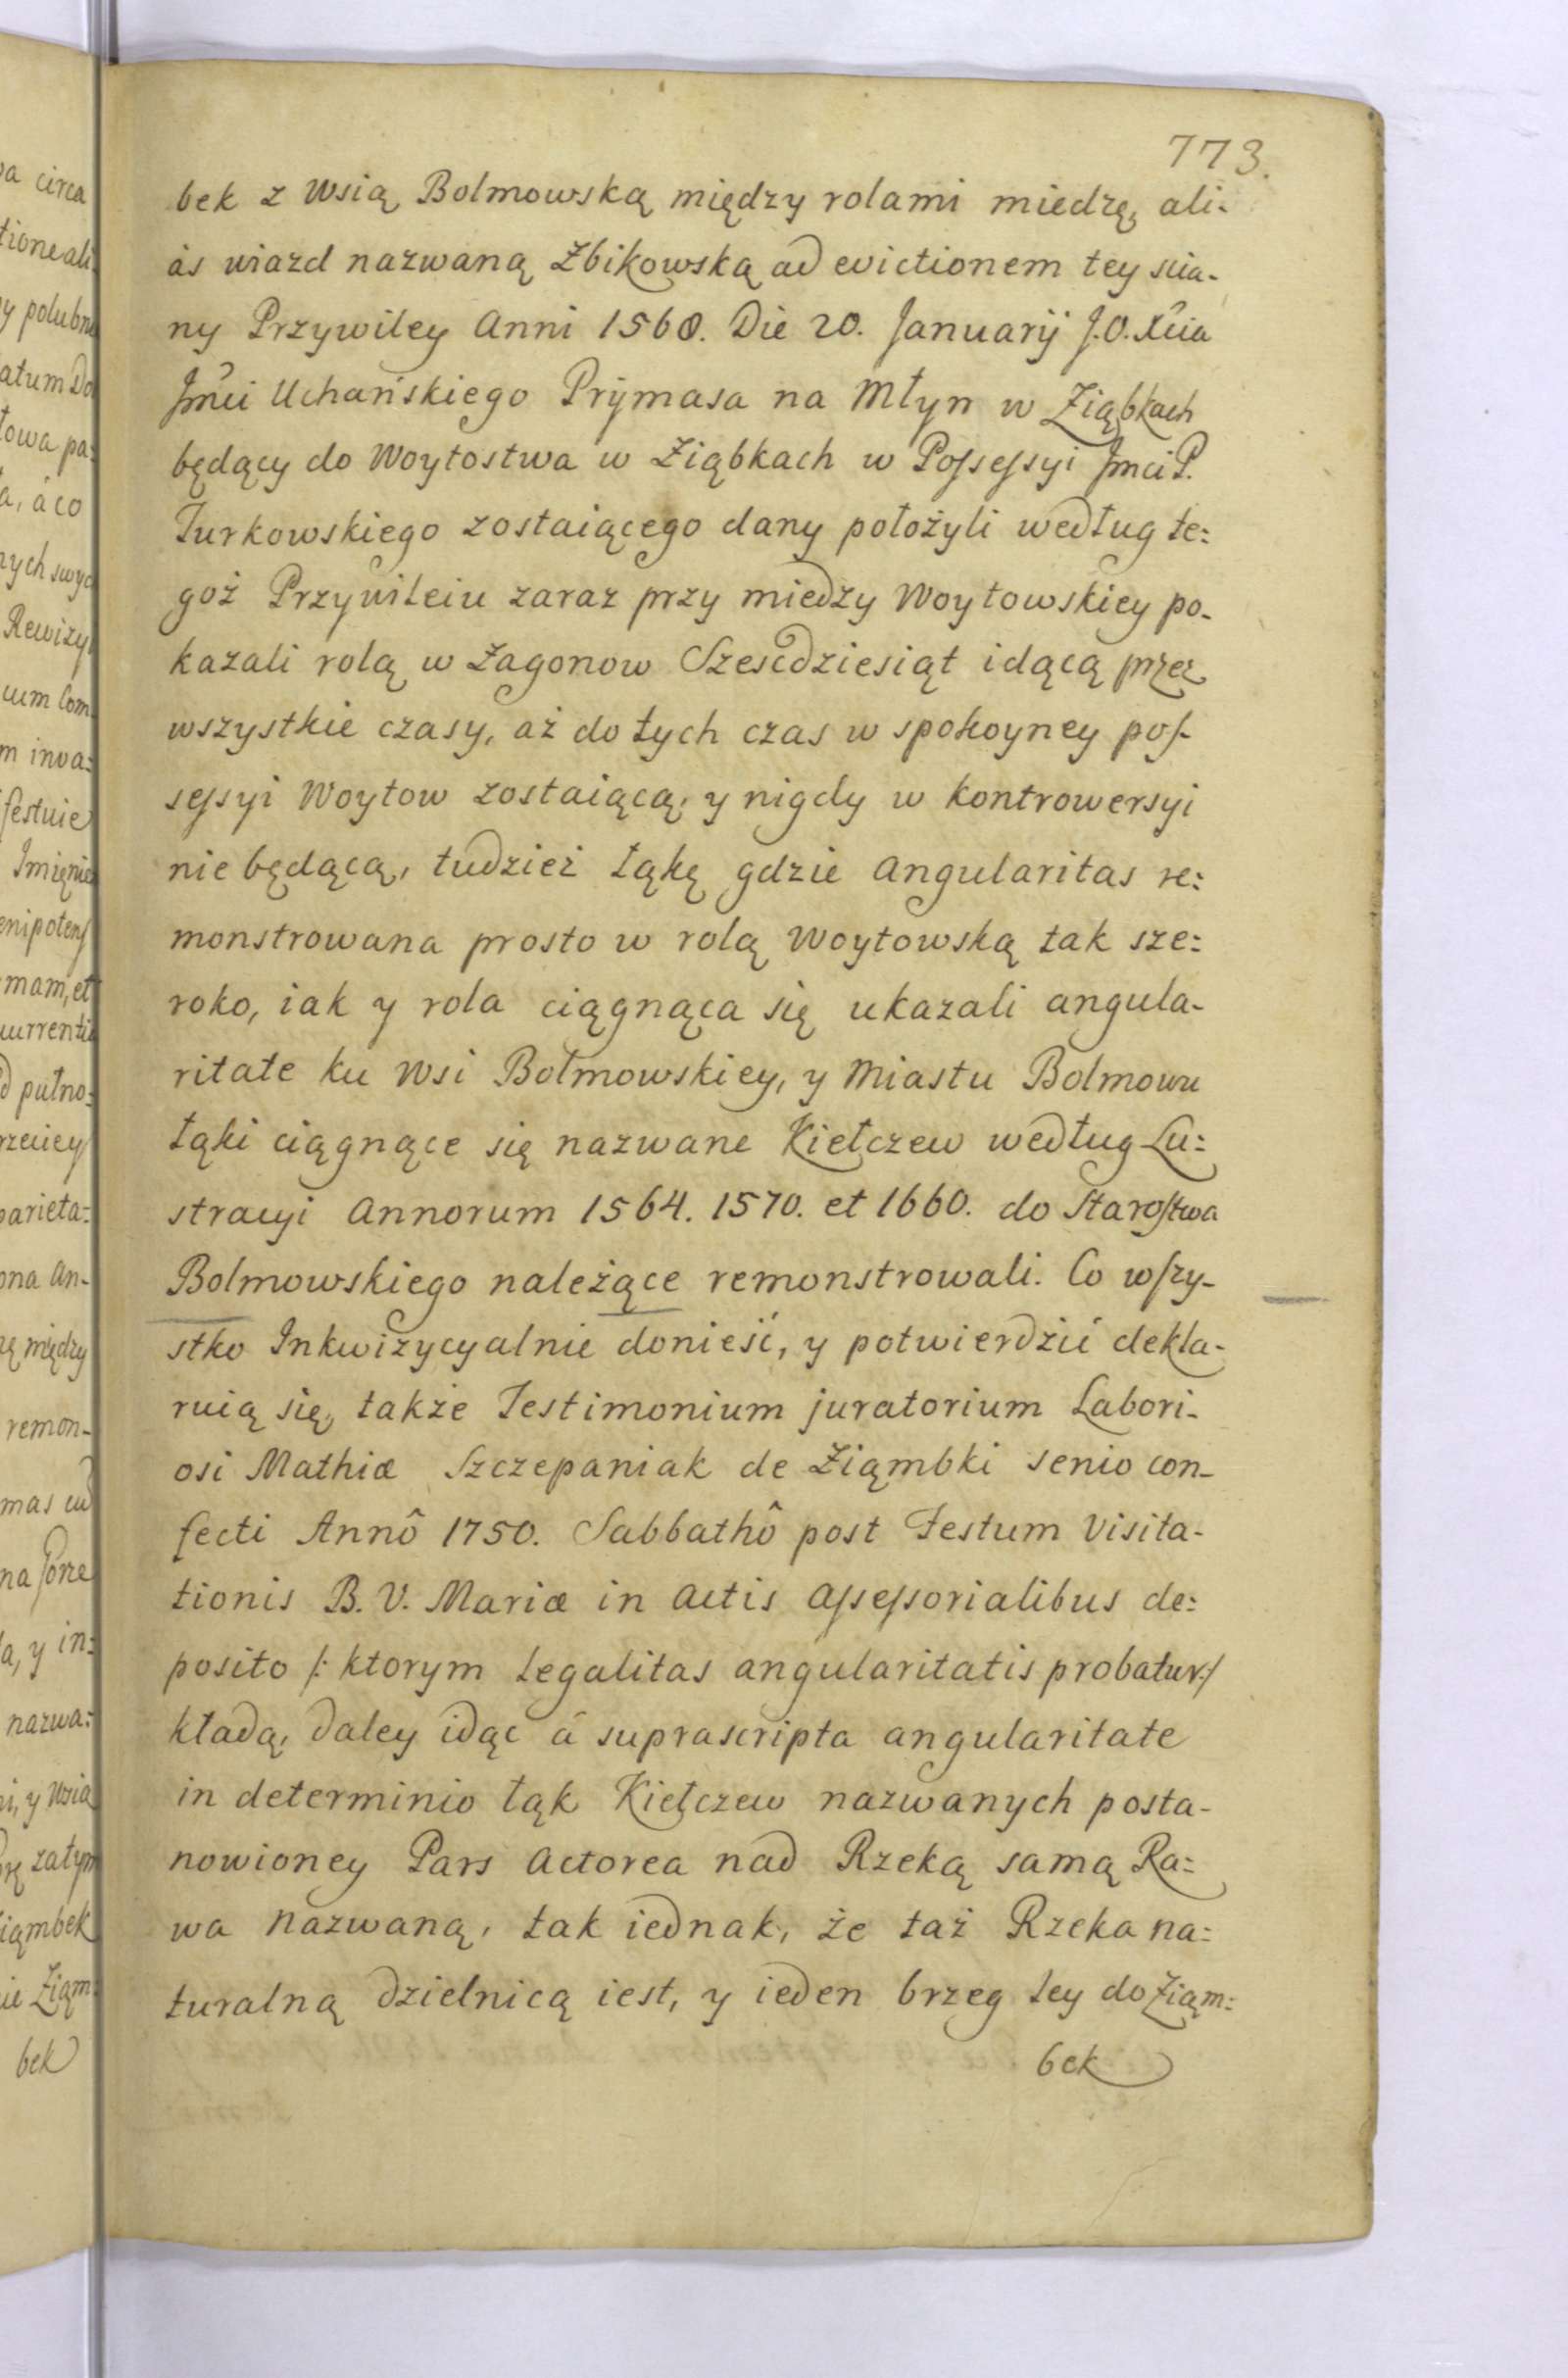 773.
bek z Wsią Bolmowską między rolami miedzę, ali-
às wiazd nazwaną Zbikowską ad evictionem tey scia-
ny Przywiley Anni 1568. Die 20. Januarij J.O. Xcia
Jmci Uchańskiego Prymasa na Młyn w Ziąbkach
będący do Woytostwa w Ziąbkach w Possessyi Jmci P.
Turkowskiego zostaiącego dany położyli według te:
goż Przywileiu zaraz przy miedzy Woytowskiey po-
kazali rolą w Zagonow Szescdziesiąt idącą przez
wszystkie czasy, aż do tych czas w spokoyney pos-
sessyi Woytow zostaiącą, y nigdy w kontrowersyi
nie będącą, tudzież łąkę gdzie angularitas re:
monstrowana prosto w rolą Woytowską tak sze:
roko, iak y rola ciągnąca się ukazali angula-
ritate ku Wsi Bolmowskiey, y Miastu Bolmowu
łąki ciągnące się nazwane Kiełczew według Lu:
stracyi Annorum 1564. 1570. et 1660. do Starostwa
Bolmowskiego należące remonstrowali. Co wszy-
stko Inkwizycyalnie donieść, y potwierdzić dekla-
ruią się, także Testimonium juratorium Labori-
osi Mathiæ Szczepaniak de Ziąmbki senio con-
fecti Annô 1750. Sabbathô post Festum Visita-
tionis B. V. Mariæ in Actis Assessorialibus de:
posito /: ktorym legalitas angularitatis probatur :/
kładą, daley idąc â suprascripta angularitate
in determinio łąk Kiełczew nazwanych posta-
nowioney Pars Actorea nad Rzeką samą Ra:
wa nazwaną, tak iednak, że taż Rzeka na:
turalną dzielnicą iest, y ieden brzeg tey do Ziąm:
bek